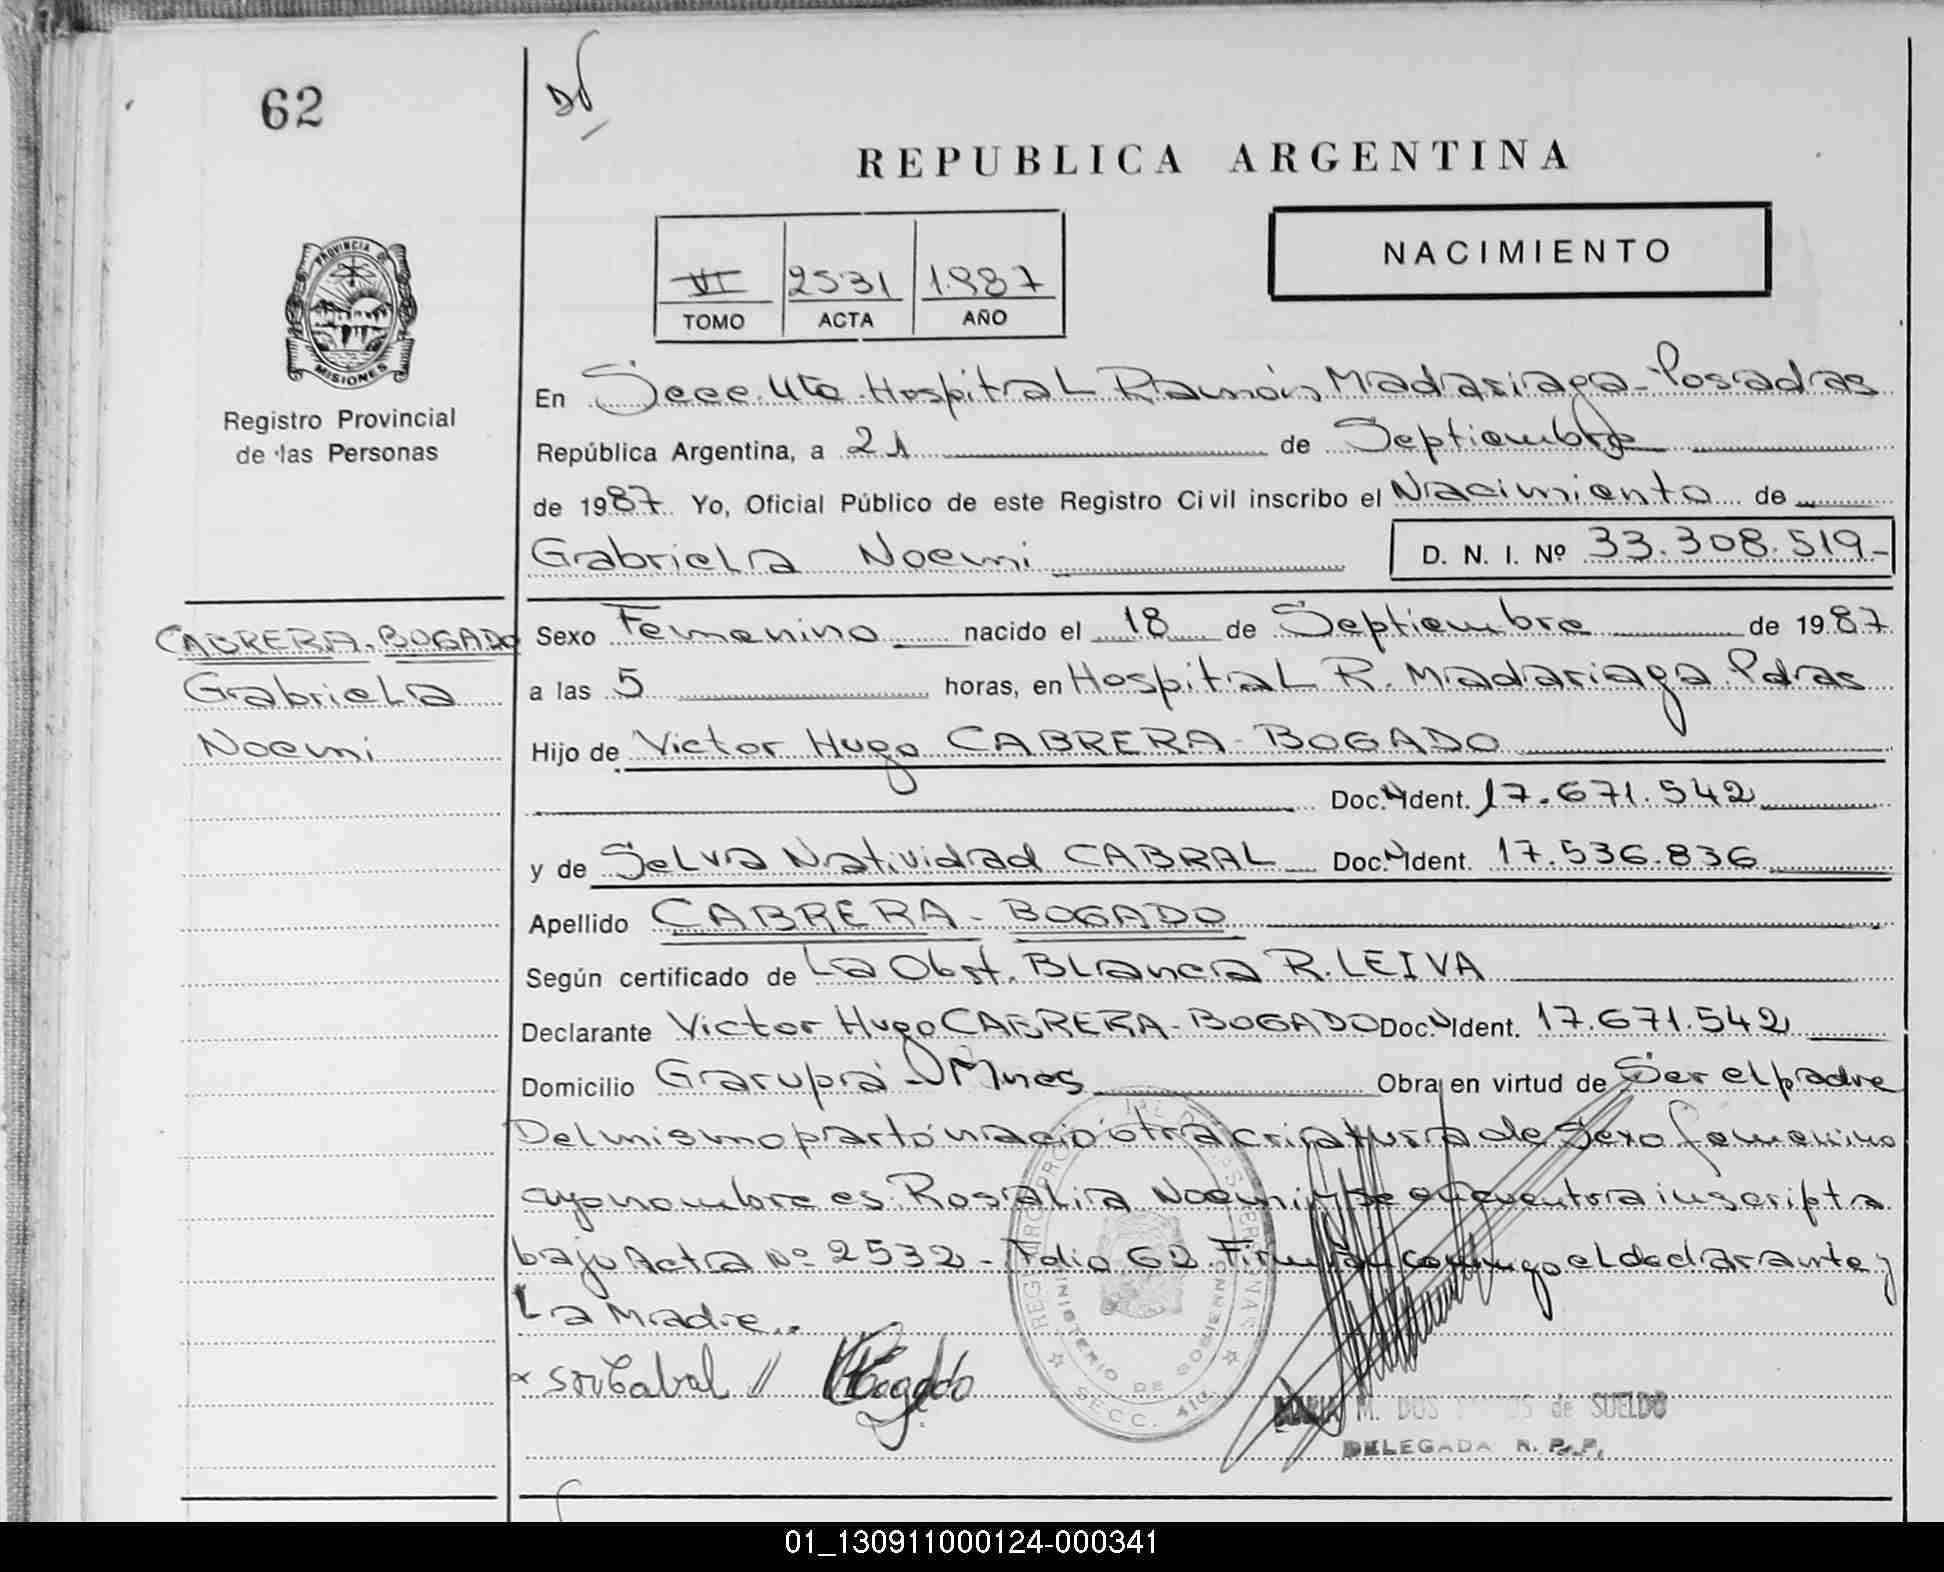 62
REPUBLICA ARGENTINA
NACIMIENTO
VI 2531 1.987
TOMO ACTA AÑO
PROVINCIA DE MISIONES
Registro Provincial
de las Personas
En Secc. 4ta. Hospital Ramón Madariaga - Posadas
República Argentina, a 21 de Septiembre
de 1987. Yo, Oficial Público de este Registro Civil inscribo el Nacimiento de
Gabriela Noemi D. N. I. Nº 33.308.519-
CABRERA-BOGADO
Gabriela
Noemi
Sexo Femenino nacido el 18 de Septiembre de 1987
a las 5 horas, en Hospital R. Madariaga Pdas
Hijo de Victor Hugo CABRERA-BOGADO
Doc. Ident. 17.671.542
y de Selva Natividad CABRAL Doc. Ident. 17.536.836
Apellido CABRERA - BOGADO
Según certificado de La Obst. Blanca R. LEIVA
Declarante Victor Hugo CABRERA-BOGADO Doc. Ident. 17.671.542
Domicilio Garupá - Mnes Obra en virtud de Ser el padre
Del mismo parto nació otra criatura de Sexo femenino
cuyo nombre es Rosalia Noemi y se encuentra inscripta
bajo Acta Nº 2532 - Folio 62. Firman conmigo el declarante y
La Madre..
Cabral // Bogado
REGISTRO PROV. DE LAS PERSONAS
MINISTERIO DE GOBIERNO
SECC. 4ta
M. DOS de SUELDO
DELEGADA R. P. P.
01_130911000124-000341